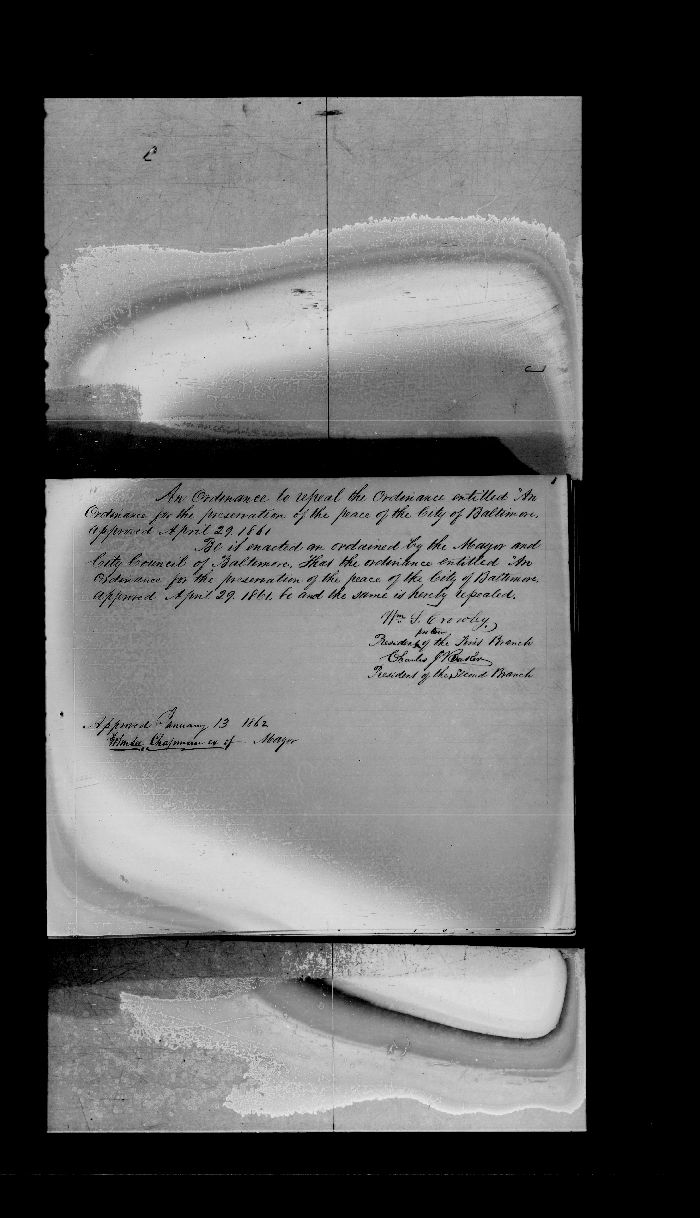 An Ordinance to repeal the Ordinance entitled "An
Ordinance for the preservation of the peace of the City of Baltimore,
approved April 29. 1861
Be it enacted an ordained by the Mayor and
City Council of Baltimore, That the ordinance entitled "An
Ordinance for the preservation of the peace of the City of Baltimore
approved April 29. 1861. be and the same is hereby repealed.
Wm S. Crowley
pro tem
President of the First Branch
Charles J
President of the Second Branch
Approved January 13 1862
Chapman ex of Mayor